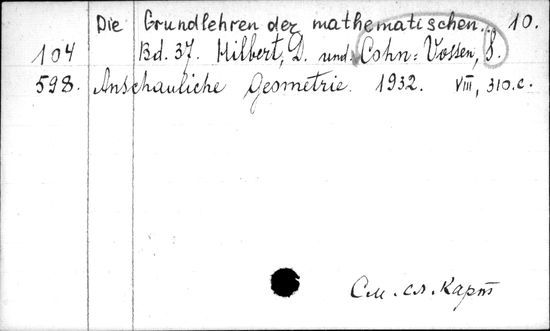 Die Grundlehren der mathematischen... 10.
104 Bd. 37. Hilbert, D. und Cohn-Vossen, S.
598. Anschauliche Geometrie. 1932. VIII, 310.c.
См. сл. карт